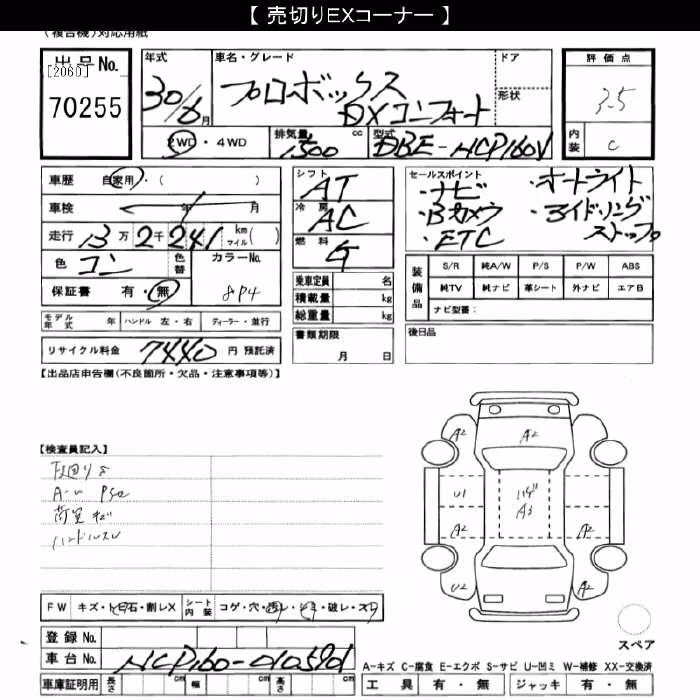 【 売切りEXコーナー 】
(複合機)対応用紙
出品No.
[2060]
70255
年式
30/6月
車名・グレード
プロボックス
DXコンフォート
ドア
形状
評価点
3.5
内装
C
2WD・4WD
排気量
1500 cc
型式
DBE-NCP160V
車歴 自家用・( )
車検 年 月
走行 13万2千241 km マイル( )
色 コン
色替
カラーNo.
8P4
保証書 有・無
シフト
AT
冷房
AC
燃料
G
セールスポイント
・ナビ ・オートライト
・Bカメラ ・アイドリング
・ETC ストップ
乗車定員 名
積載量 kg
総重量 kg
装備品
S/R 純A/W P/S P/W ABS
純TV 純ナビ 革シート 外ナビ エアB
ナビ型番:
モデル年式 年 ハンドル 左・右 ディーラー・並行
書類期限
月 日
後日品
リサイクル料金 7440 円 預託済
【出品店申告欄(不良箇所・欠品・注意事項等)】
【検査員記入】
下回りS
荷室キズ
ハンドルスレ
A2
A2
A2
U1
ハゲ
A3
A2
A2
U2
A2
FW キズ・ト石・割レX シート内装 コゲ・穴・切レ・シミ・破レ・スレ
登録No.
車台No. NCP160-0105901
車庫証明用 長さ cm 幅 cm 高さ cm
スペア
A-キズ C-腐食 E-エクボ S-サビ U-凹ミ W-補修 XX-交換済
工具 有・無 ジャッキ 有・無